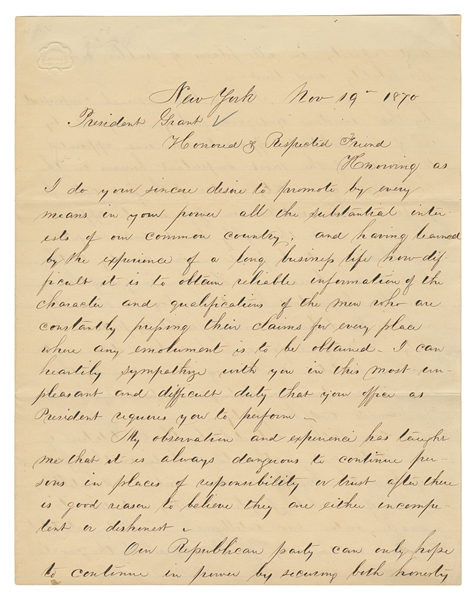 New York Nov 19" 1870
President Grant
Honored & Respected Friend
Knowing as
I do your sincere desire to promote by every
means in your power all the substantial inter-
ests of our common country; and having learned
by the experience of a long business life how dif-
ficult it is to obtain reliable information of the
character and qualifications of the men who are
constantly pressing their claims for every place
where any emolument is to be obtained - I can
heartily sympathize with you in this most un-
pleasant and difficult duty that your office as
President requires you to perform -
My observation and experience has taught
me that it is always dangerous to continue per-
sons in places of responsibility or trust after there
is good reason to believe they are either incompe-
tent or dishonest.
Our Republican party can only hope
to continue in power by securing both honesty